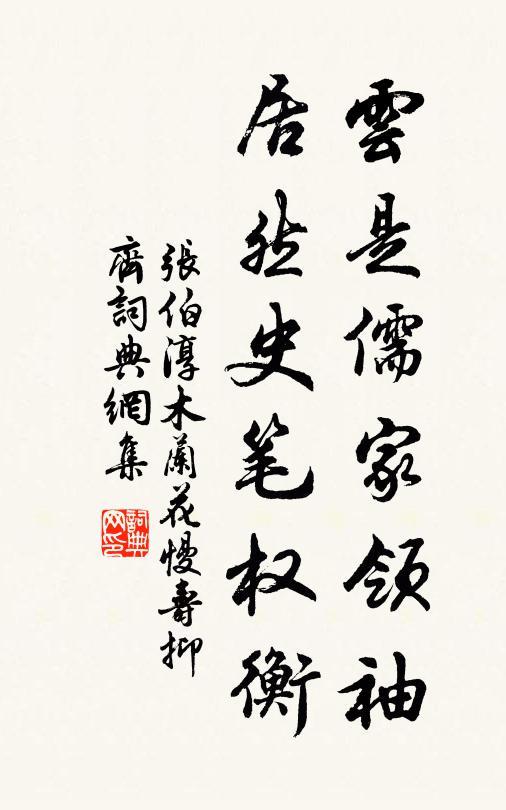 雲是儒家領袖
居然史笔权衡
張伯淳木蘭花慢壽抑
齋詞典網集
詞典网印